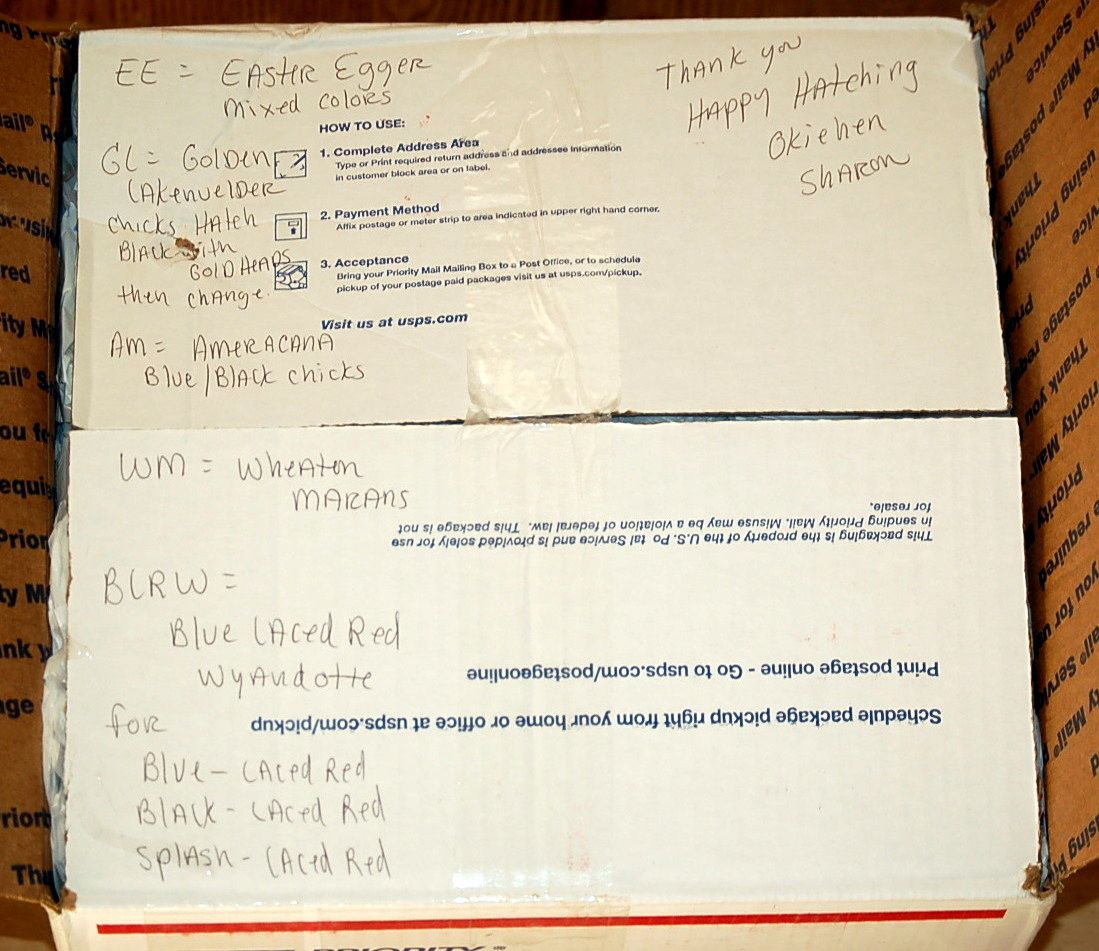 EE = EASTER EGGER
Mixed Colors
Thank you
HAPPY HAtching
Okiehen
SHARON
HOW TO USE:
GL = GolDen
LAKenvelDER
chicks HAtch
BlAck with
GOLD HEADS
then change.
1. Complete Address Area
Type or Print required return address and addressee information
in customer block area or on label.
2. Payment Method
Affix postage or meter strip to area indicated in upper right hand corner.
3. Acceptance
Bring your Priority Mail Mailing Box to a Post Office, or to schedule
pickup of your postage paid packages visit us at usps.com/pickup.
Visit us at usps.com
AM = AMERACANA
Blue/BlAck chicks
WM = WheAton
MARANS
This packaging is the property of the U.S. Po tal Service and is provided solely for use
in sending Priority Mail. Misuse may be a violation of federal law. This package is not
for resale.
BLRW =
Blue LAced Red
WyAndotte
for
Blue - LAced Red
BlAck - LAced Red
SplAsh - LAced Red
Print postage online - Go to usps.com/postageonline
Schedule package pickup right from your home or office at usps.com/pickup
PRIORITY